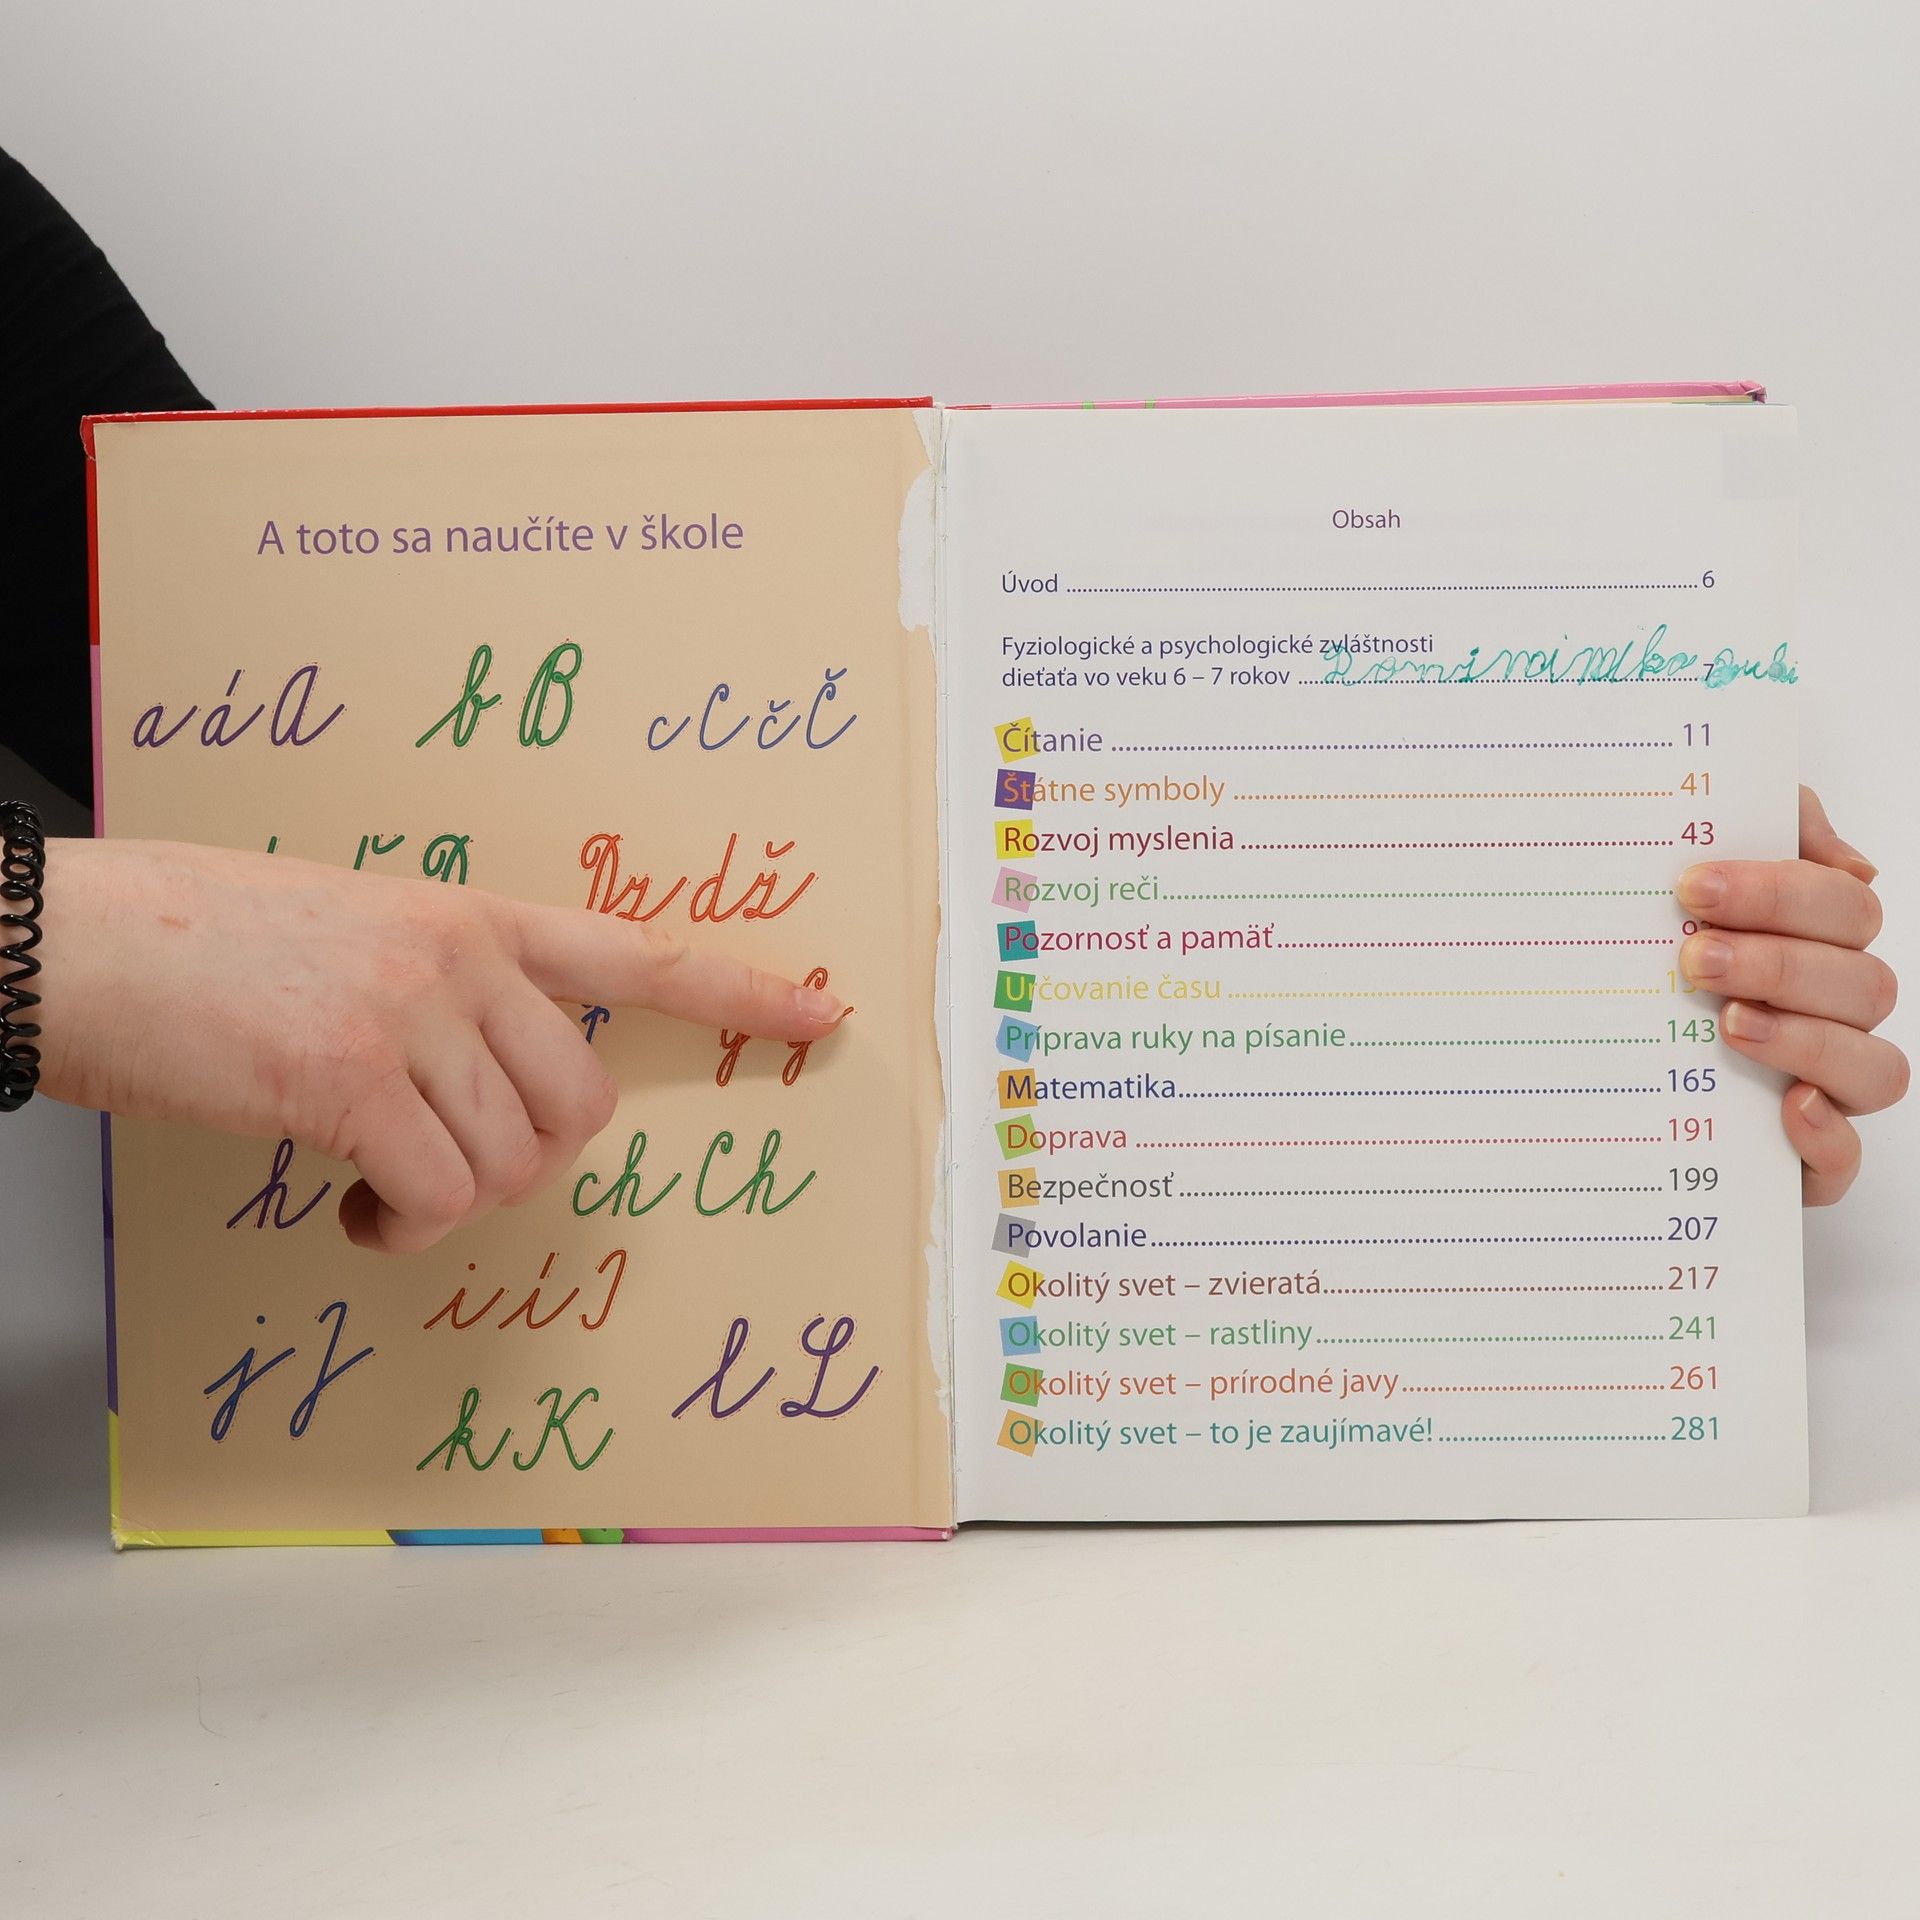 A toto sa naučíte v škole
a á A
b B
c C č Č
Dz dž
h
ch Ch
i í I
j J
k K
l L
Obsah
Úvod ........ 6
Fyziologické a psychologické zvláštnosti
dieťaťa vo veku 6 – 7 rokov ........ 7
Čítanie ........ 11
Štátne symboly ........ 41
Rozvoj myslenia ........ 43
Rozvoj reči ........
Pozornosť a pamäť ........
Určovanie času ........
Príprava ruky na písanie ........ 143
Matematika ........ 165
Doprava ........ 191
Bezpečnosť ........ 199
Povolanie ........ 207
Okolitý svet – zvieratá ........ 217
Okolitý svet – rastliny ........ 241
Okolitý svet – prírodné javy ........ 261
Okolitý svet – to je zaujímavé! ........ 281